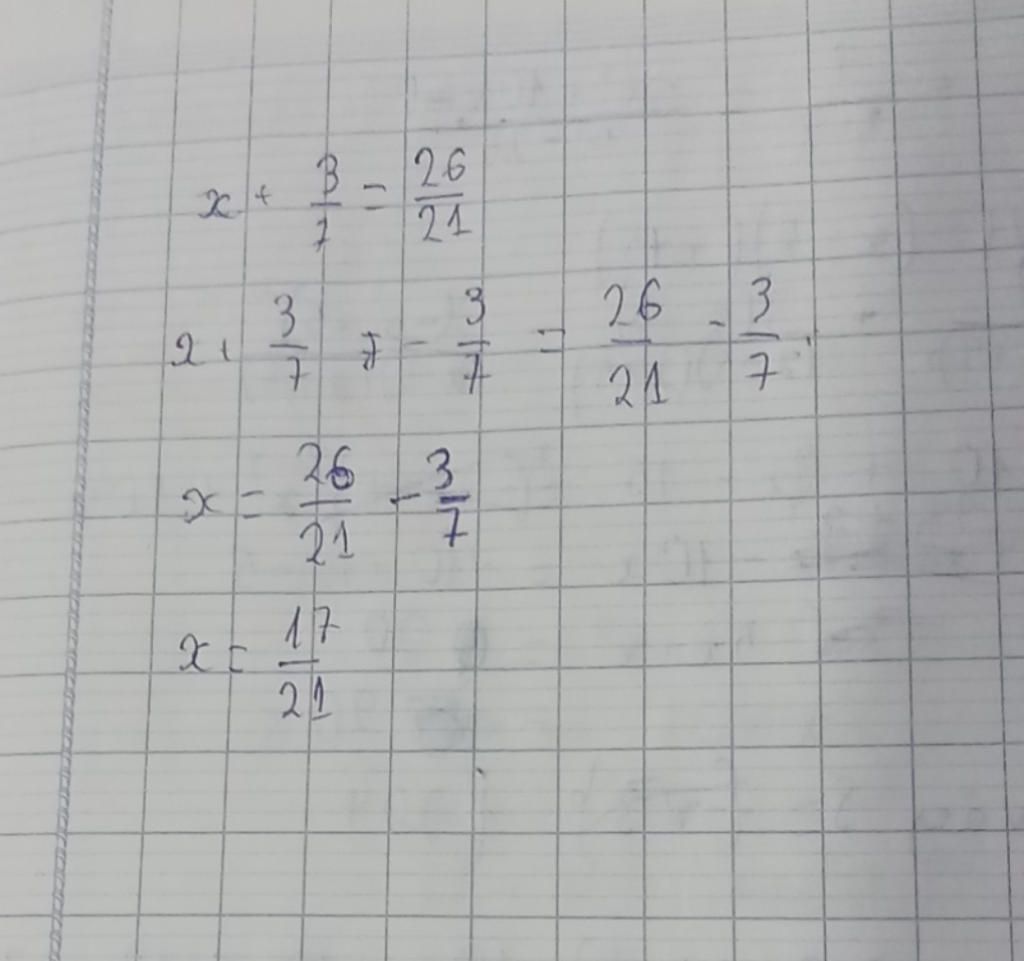 x + 3/7 = 26/21
x + 3/7 - 3/7 = 26/21 - 3/7.
x = 26/21 - 3/7
x = 17/21